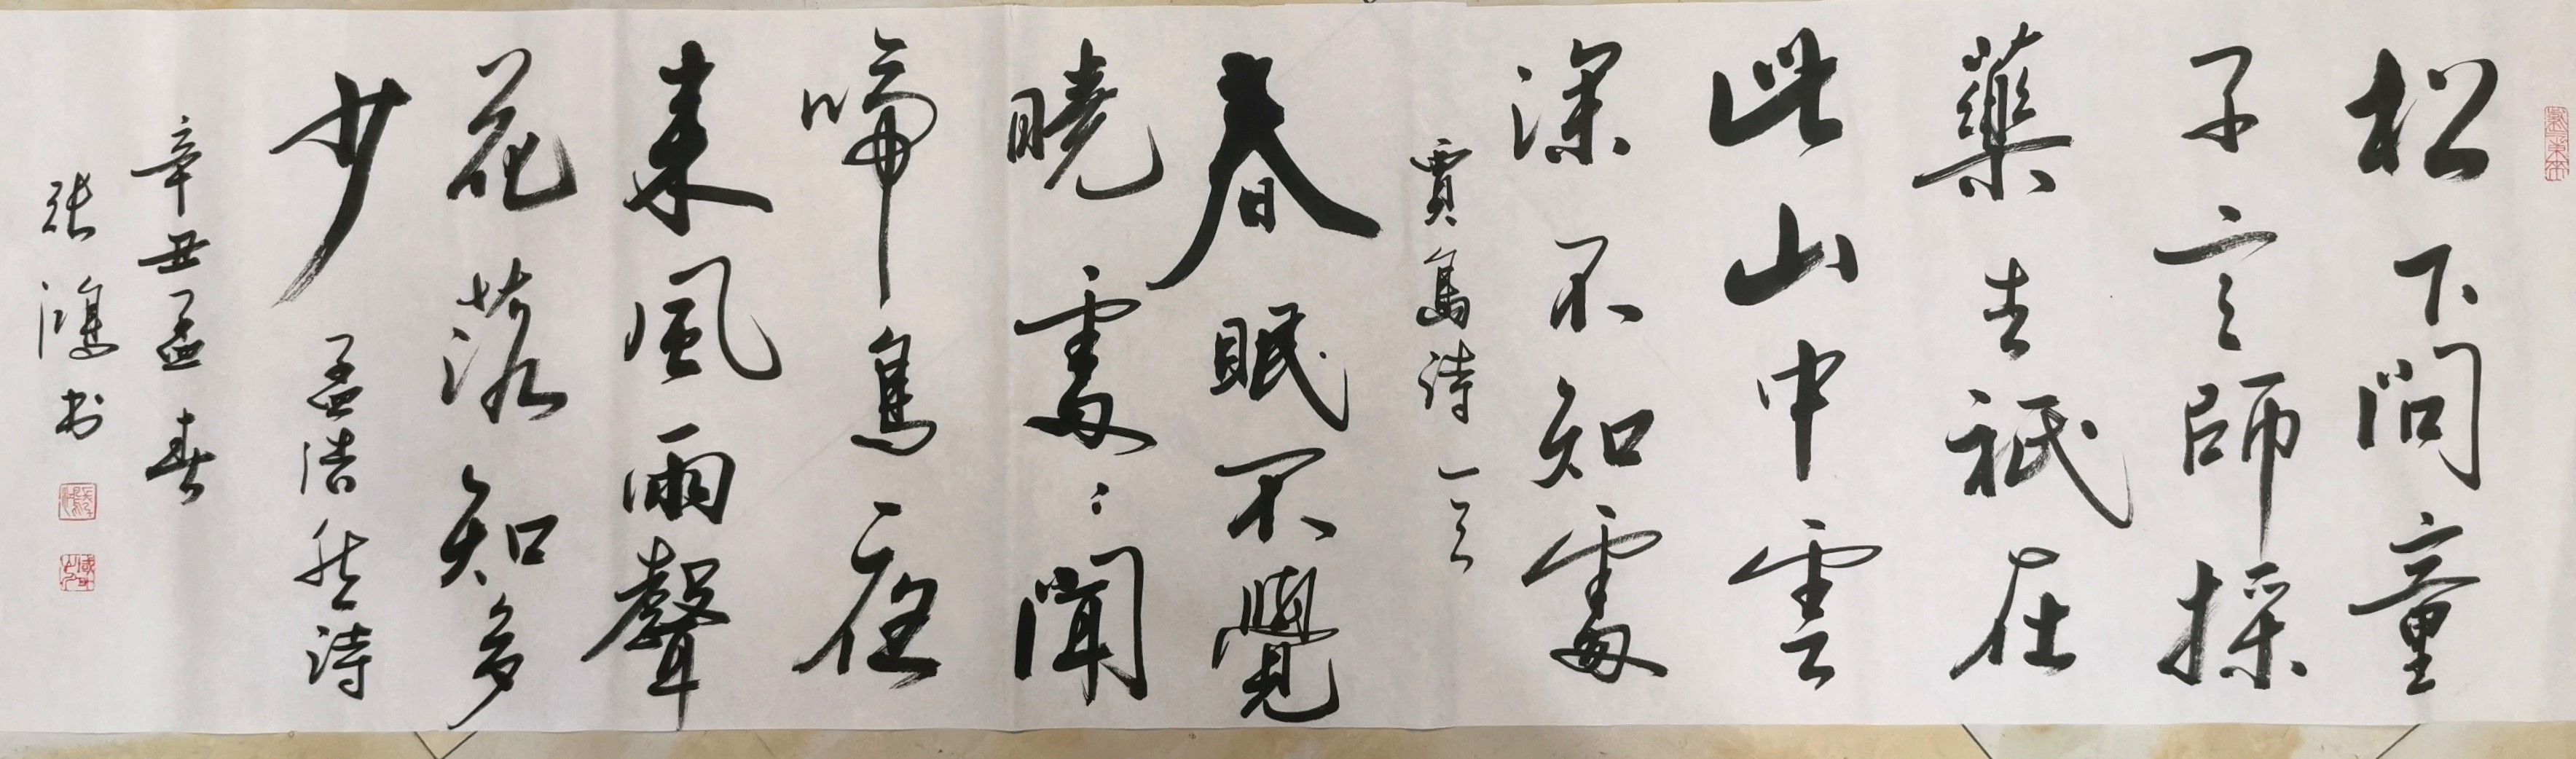 松下問童
子言師採
藥去祇在
此山中雲
深不知處
賈島詩一首
春眠不覺
曉處〻聞
啼鳥夜
來風雨聲
花落知多
少
孟浩然詩
辛丑孟春
張鴻书